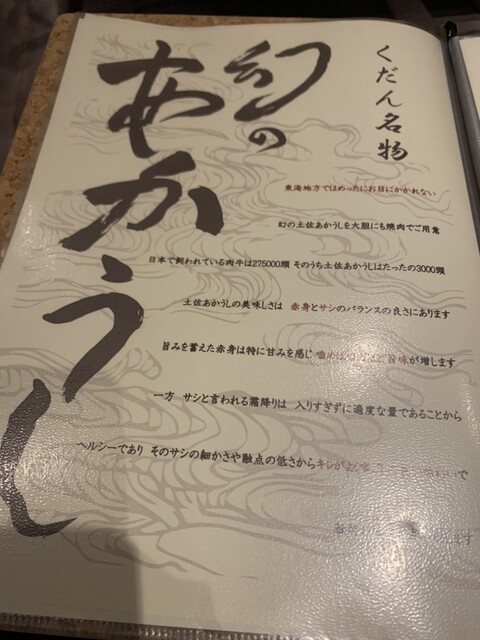 くだん名物
幻の
あかうし
東海地方ではめったにお目にかかれない
幻の土佐あかうしを大胆にも焼肉でご用意
日本で飼われている肉牛は275000頭 そのうち土佐あかうしはたったの3000頭
土佐あかうしの美味しさは 赤身とサシのバランスの良さにあります
旨みを蓄えた赤身は特に甘みを感じ 噛めば噛むほど旨味が増します
一方 サシと言われる霜降りは 入りすぎずに適度な量であることから
ヘルシーであり そのサシの細かさや融点の低さからキレがよく で
ます